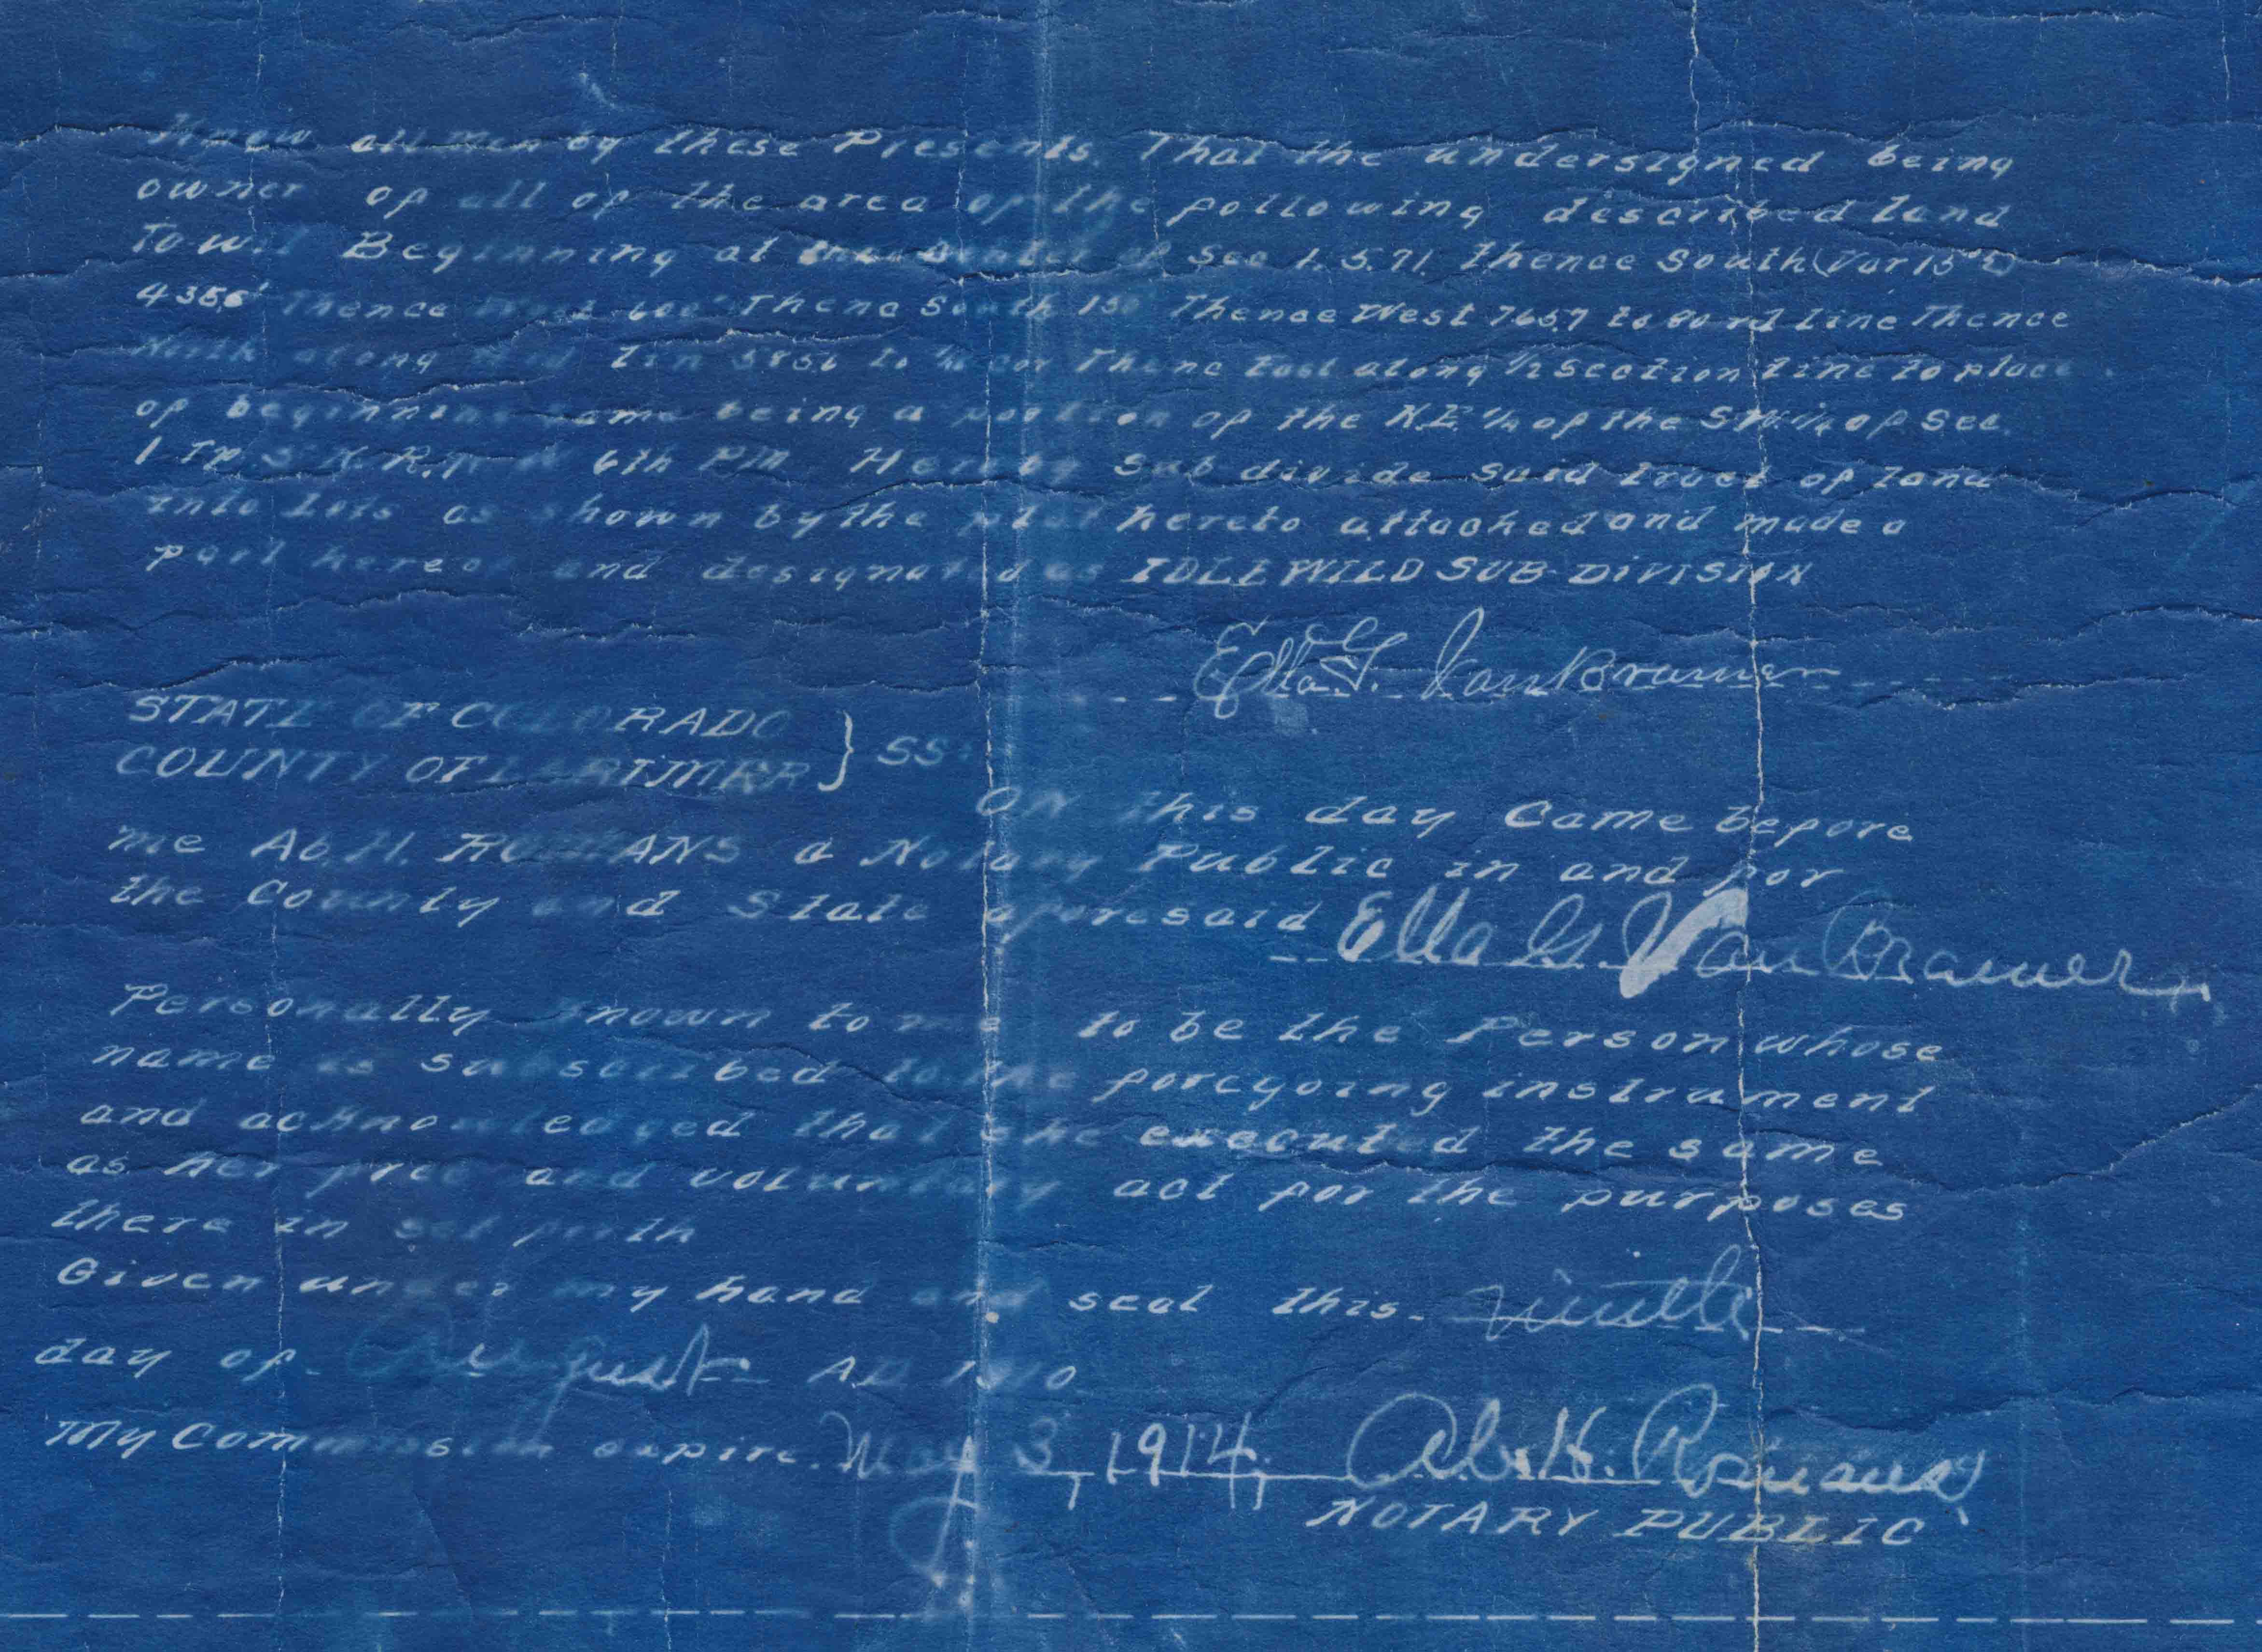 Know all men by these Presents. That the undersigned being
owner of all of the area of the following described land
To wit Beginning at of Sec 1.5.71. thence South (Var 15° E)
435.6' Thence West 600' Thenc South 150 Thence West 765.7 to line Thence
North along Lin 585.6 to 1/16 cor Thenc East along 1/2 Section line to place
of beginning same being a portion of the N.E.1/4 of the S.W.1/4 of Sec.
1 Tp. 5 N. R. 71 W 6th PM. Hereby Sub divide said tract of land
into Lots as shown by the plat hereto attached and made a
part hereof and designated as IDLEWILD SUB-DIVISION
Ella G. Van Bramer
STATE OF COLORADO
COUNTY OF LARIMER } SS:
ON this day Came before
me Ab. H. ROMANS a Notary Public in and for
the County and State aforesaid Ella G. Van Bramer
Personally known to me to be the Person whose
name is subscribed to the foregoing instrument
and acknowledged that she executed the same
as her free and voluntary act for the purposes
there in set forth
Given under my hand and seal this ninth
day of August A.D 1910
My Commission expire May 3, 1914. Ab. H. Romans
NOTARY PUBLIC